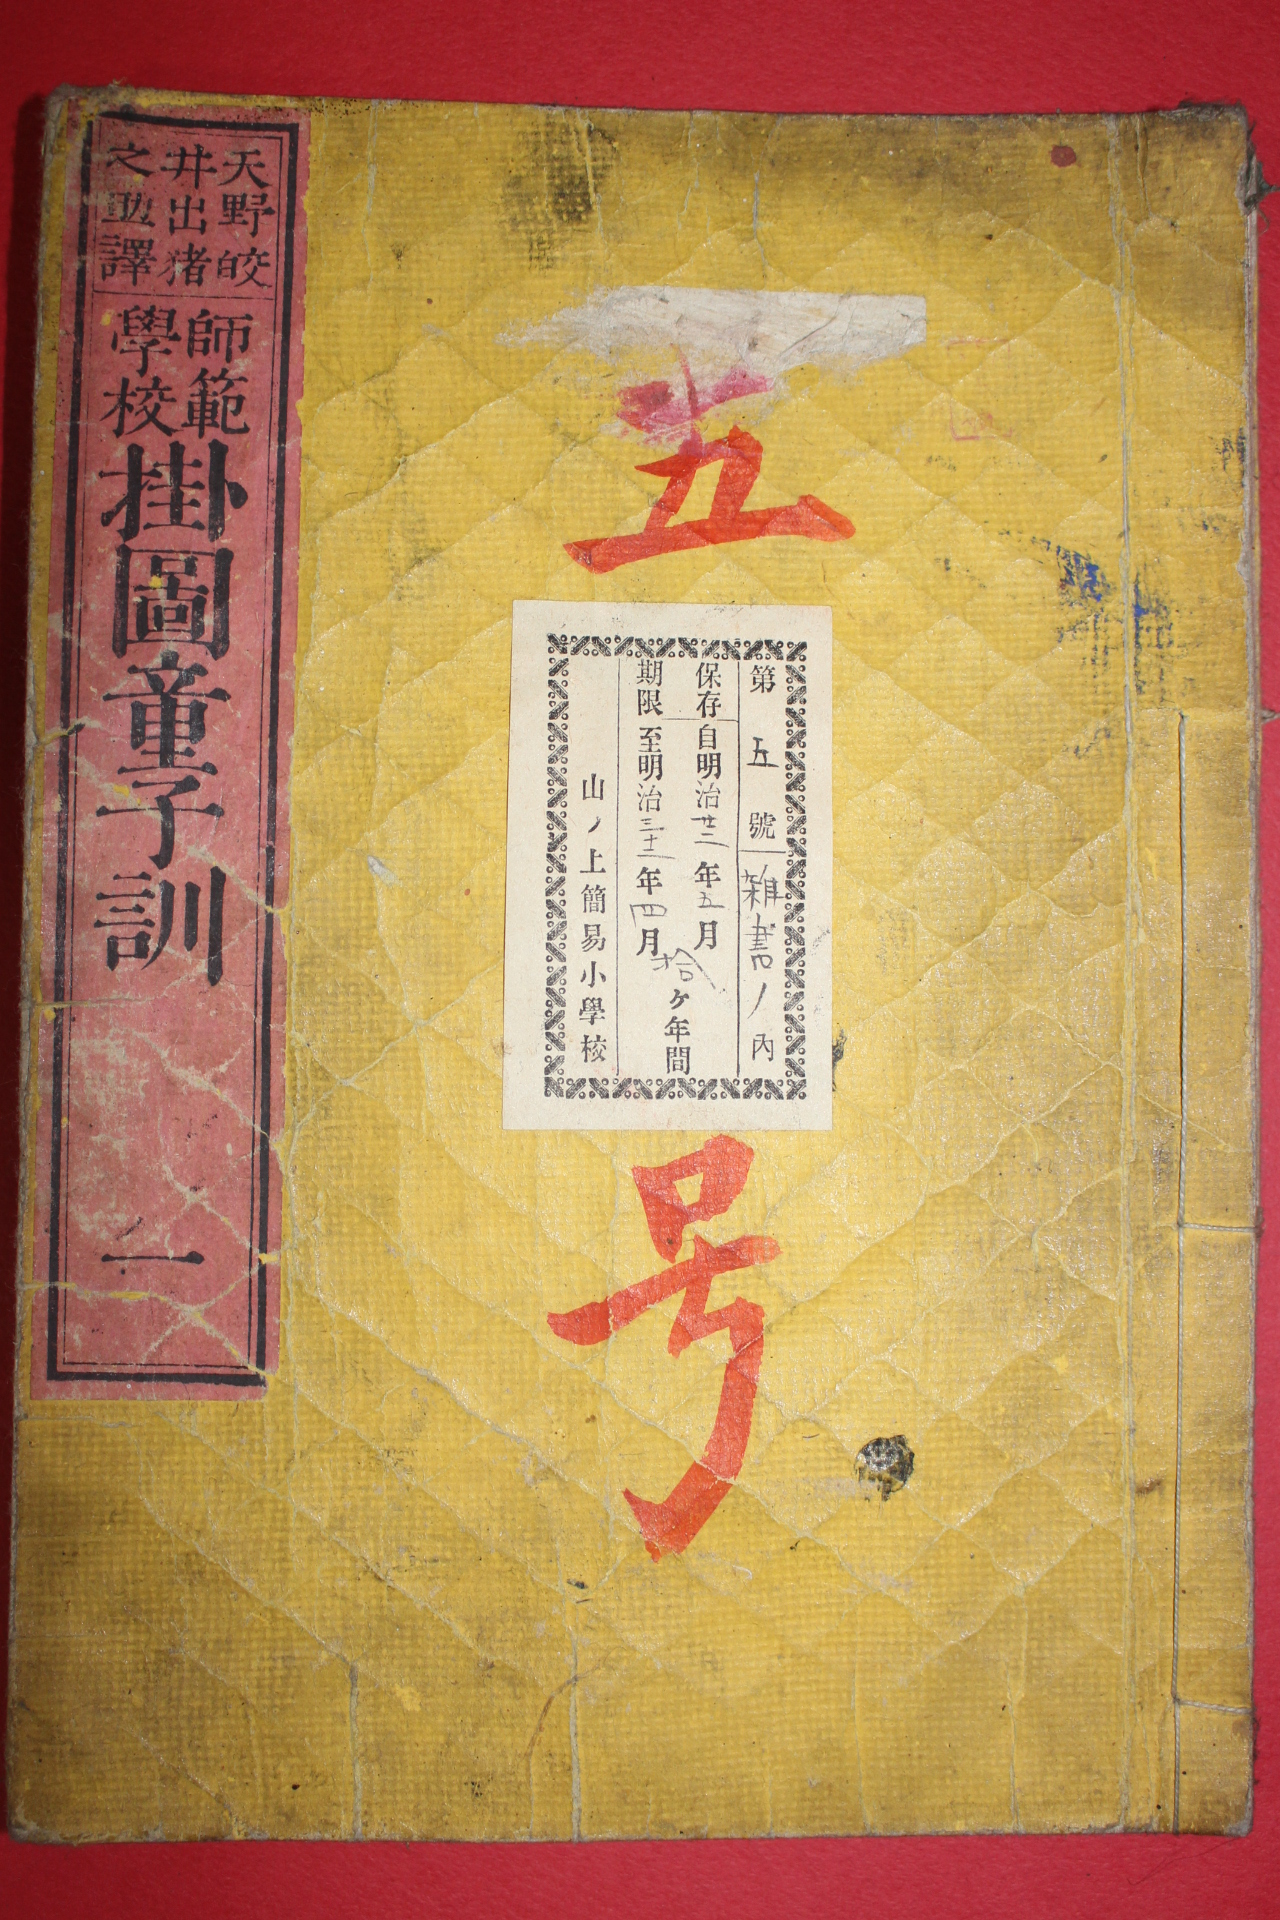 天野皎
井出猪
之助譯
師範
學校
掛圖童子訓
一
五
号
第五號
雜書ノ內
保存
期限
自明治廿二年五月
至明治三十二年四月
拾ヶ年間
山ノ上簡易小學校